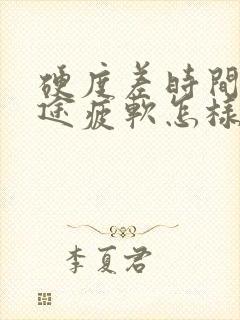 硬度差時間
途疲軟怎樣
李夏君